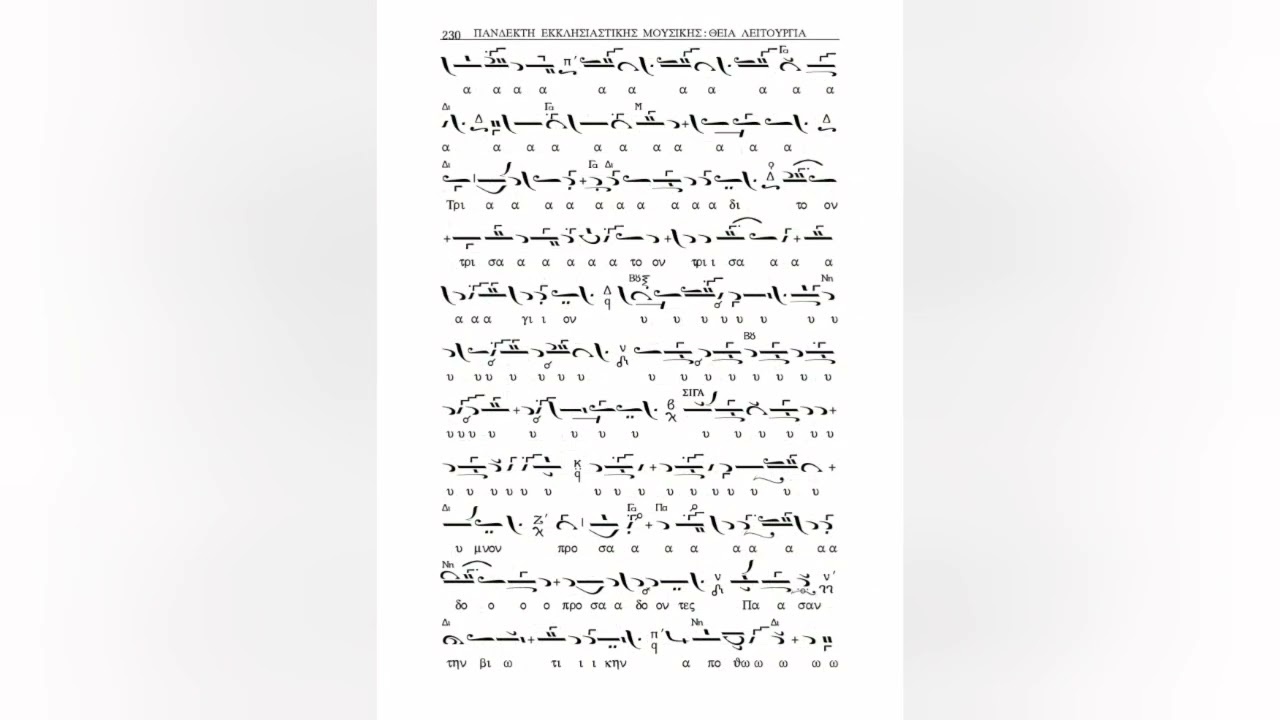 230 ΠΑΝΔΕΚΤΗ ΕΚΚΛΗΣΙΑΣΤΙΚΗΣ ΜΟΥΣΙΚΗΣ: ΘΕΙΑ ΛΕΙΤΟΥΡΓΙΑ
π΄ Γα
α α α α α α α α α α α
Δι Δ Γα Μ Δ
α α α α α α α α α α
Δι Γα Δι Δ
Τρι α α α α α α α α α α δι το ον
τρι σα α α α α α το ον τρι ι σα α α α
Δ q Βȣ Νη
α α α γι ι ον υ υ υ υ υ υ υ υ
ν Βȣ
υ υ υ υ υ υ υ υ υ υ υ υ υ υ υ
β ΣΙΓΑ
υ υ υ υ υ υ υ υ υ υ υ υ υ υ
κ q
υ υ υ υ υ υ υ υ υ υ υ υ υ υ υ
Δι Ζ΄ Γα Πα
υ μνον προ σα α α α α α α α α
Νη ν ν΄
δο ο ο ο προ σα α δο ον τες Πα α σαν
Δι π΄ q Νη Δι
την βι ω τι ι ι κην α πο θω ω ω ω ω